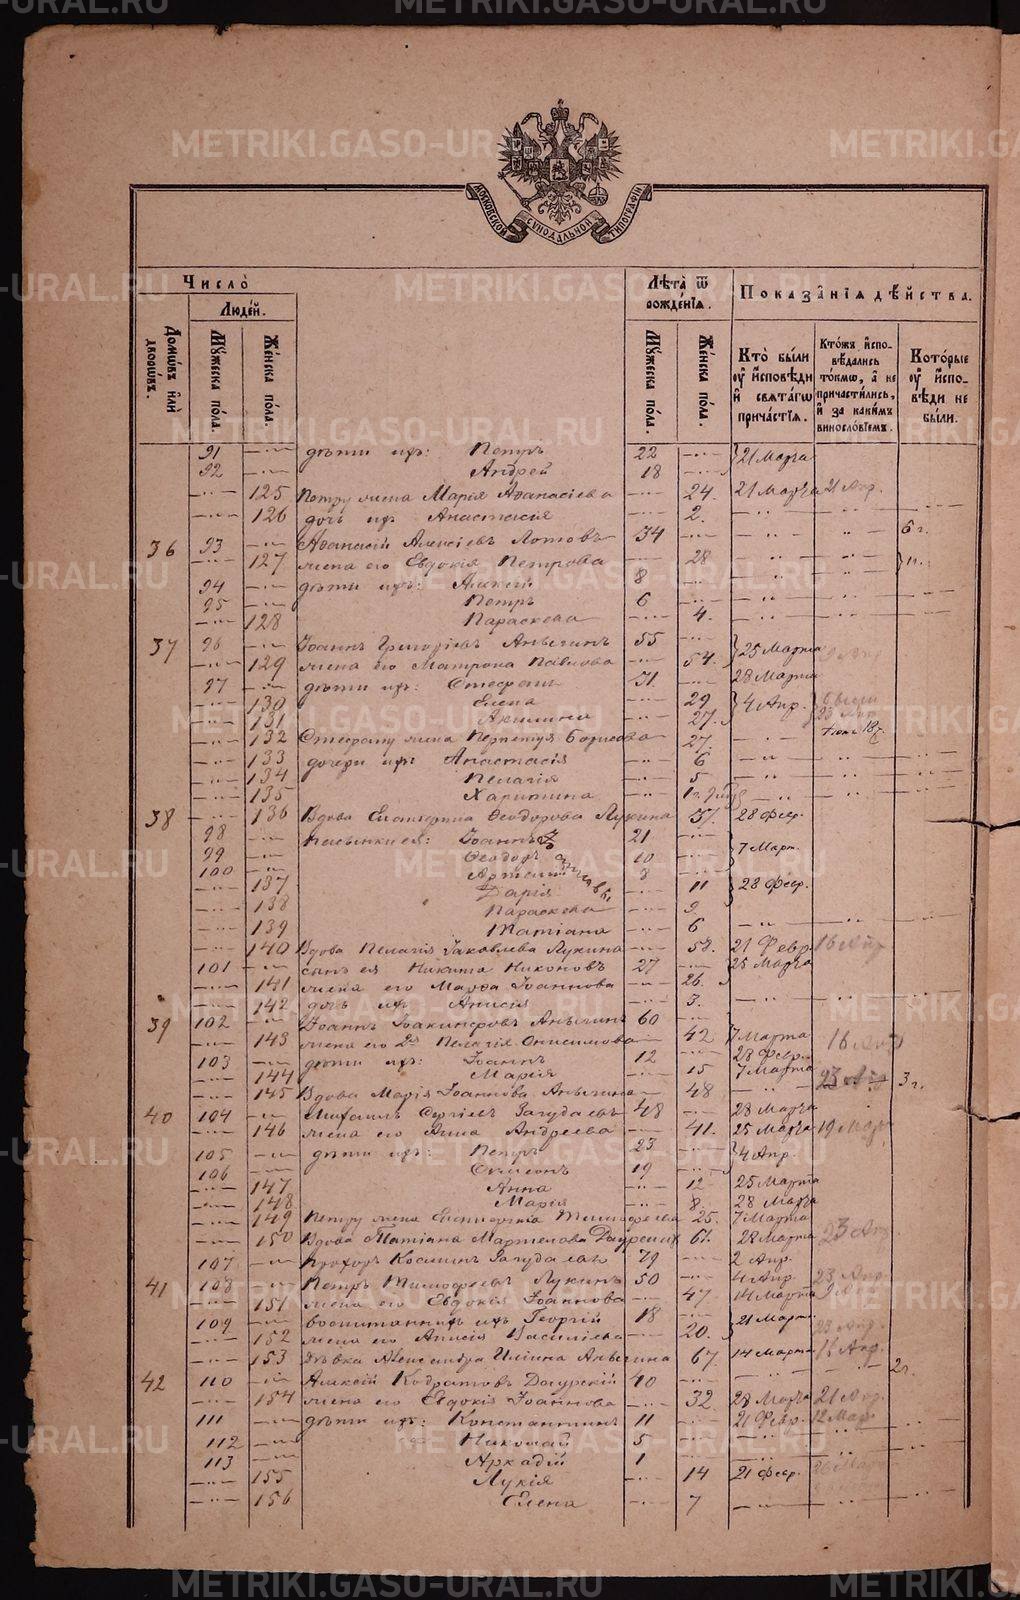 МОСКОВСКОЙ СУНОДАЛЬНОЙ ТИПОГРАФІИ
Число̀
Людѐй.
Домѡвъ илѝ дворѡвъ.
Мꙋжеска пола.
Женска пола.
Лѣта̀ ѿ рождѐнїѧ.
Мꙋжеска пола.
Женска пола.
Показа̑нїѧ дѣйства.
Кто̀ бы́ли оу҆ и҆сповѣди и҆ свѧта́гѡ прича́стїѧ.
Кто́жъ и҆сповѣдались то́кмѡ, а҆ не причасти́лись, и҆ за каки́мъ винослоⷡ҇іемъ.
Кото́рые оу҆ и҆спо­вѣди не бы́ли.
91 дѣти ихъ: Петръ 22 21 Марта
92 Андрей 18
125 Петру жена Марія Аѳанасіева 24. 21 Марта 21 Апр.
126 дочь ихъ Анастасія 2.
36 93 Аѳанасій Алексѣевъ Лотовъ 34 6 г.
127 жена его Евдокія Петрова 28
94 дѣти ихъ: Алексій 8
95 Петръ 6
128 Параскева 4.
37 96 Іоаннъ Григоріевъ Аньгинъ 55 25 Марта
129 жена его Матрона Павлова 54.
97 дѣти ихъ: Стефанъ 31. 28 Марта
130 Елена 29 4 Апр.
131 Акилина 27.
132 Стефану жена Перпетуя Борисова 27.
133 дочери ихъ Анастасія 6
134 Пелагія 5
135 Харитина
38 136 Вдова Екатерина Ѳеодорова Лукина 57. 28 Февр.
98 пасынки ея: Іоаннъ 21 7 Март.
99 Ѳеодоръ 10
100 Артемій 8
137 Дарія 11 28 Февр.
138 Параскева 9
139 Татіана 6
140 Вдова Пелагія Іаковлева Лукина 58. 21 Февр. 16 Апр
101 сынъ ея Никита Никоновъ 27 25 Марта
141 жена его Марѳа Іоаннова 26.
142 дочь ихъ Анисія 3.
39 102 Іоаннъ Іоакинфовъ Аньгинъ 60
143 жена его 2я Пелагія Онисимова 42 7 Марта 16 Апр
103 дѣти ихъ: Іоаннъ 12 28 Февр.
144 Марія 15 7 Марта
145 Вдова Марія Іоаннова Аньгина 48 23 Апр 3 г.
40 104 Михаилъ Сергіевъ Загудаевъ 48 28 Марта
146 жена его Анна Андреева 41. 25 Марта 19 Мар
105 дѣти ихъ: Петръ 23 4 Апр.
106 Симеонъ 19
147 Анна 12 25 Марта
148 Марія 8. 28 Марта
149 Петру жена Екатерина Тимофеева 25. 7 Марта
150 Вдова Татіана Мартемова Даурскихъ 61. 28 Марта 23 Апр
107 Прохоръ Косминъ Загудаевъ 79 2 Апр.
41 108 Петръ Тимофеевъ Лукинъ 50 4 Апр. 23 Апр.
151 жена его Евдокія Іоаннова 47. 14 Марта
109 воспитанникъ ихъ Георгій 18 21 Март
152 жена его Анисія Василіева 20. 23 Апр.
153 Дѣвка Александра Иліина Аньгина 67. 14 Март 16 Апр.
42 110 Алексій Кодратовъ Даурскій 40 2 г.
154 жена его Евдокія Іоаннова 32. 28 Марта 21 Апр.
111 дѣти ихъ: Константинъ 11 21 Февр. 12 Мар
112 Николай 5
113 Аркадій 1
155 Лукія 14 21 Февр.
156 Елена 7
METRIKI.GASO-URAL.RU